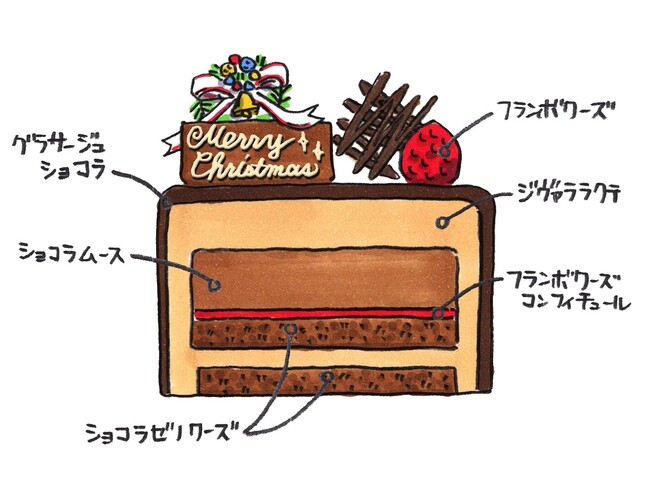 Merry
Christmas
フランボワーズ
グラサージュ
ショコラ
ジヴァララクテ
ショコラムース
フランボワーズ
コンフィチュール
ショコラゼノワーズ